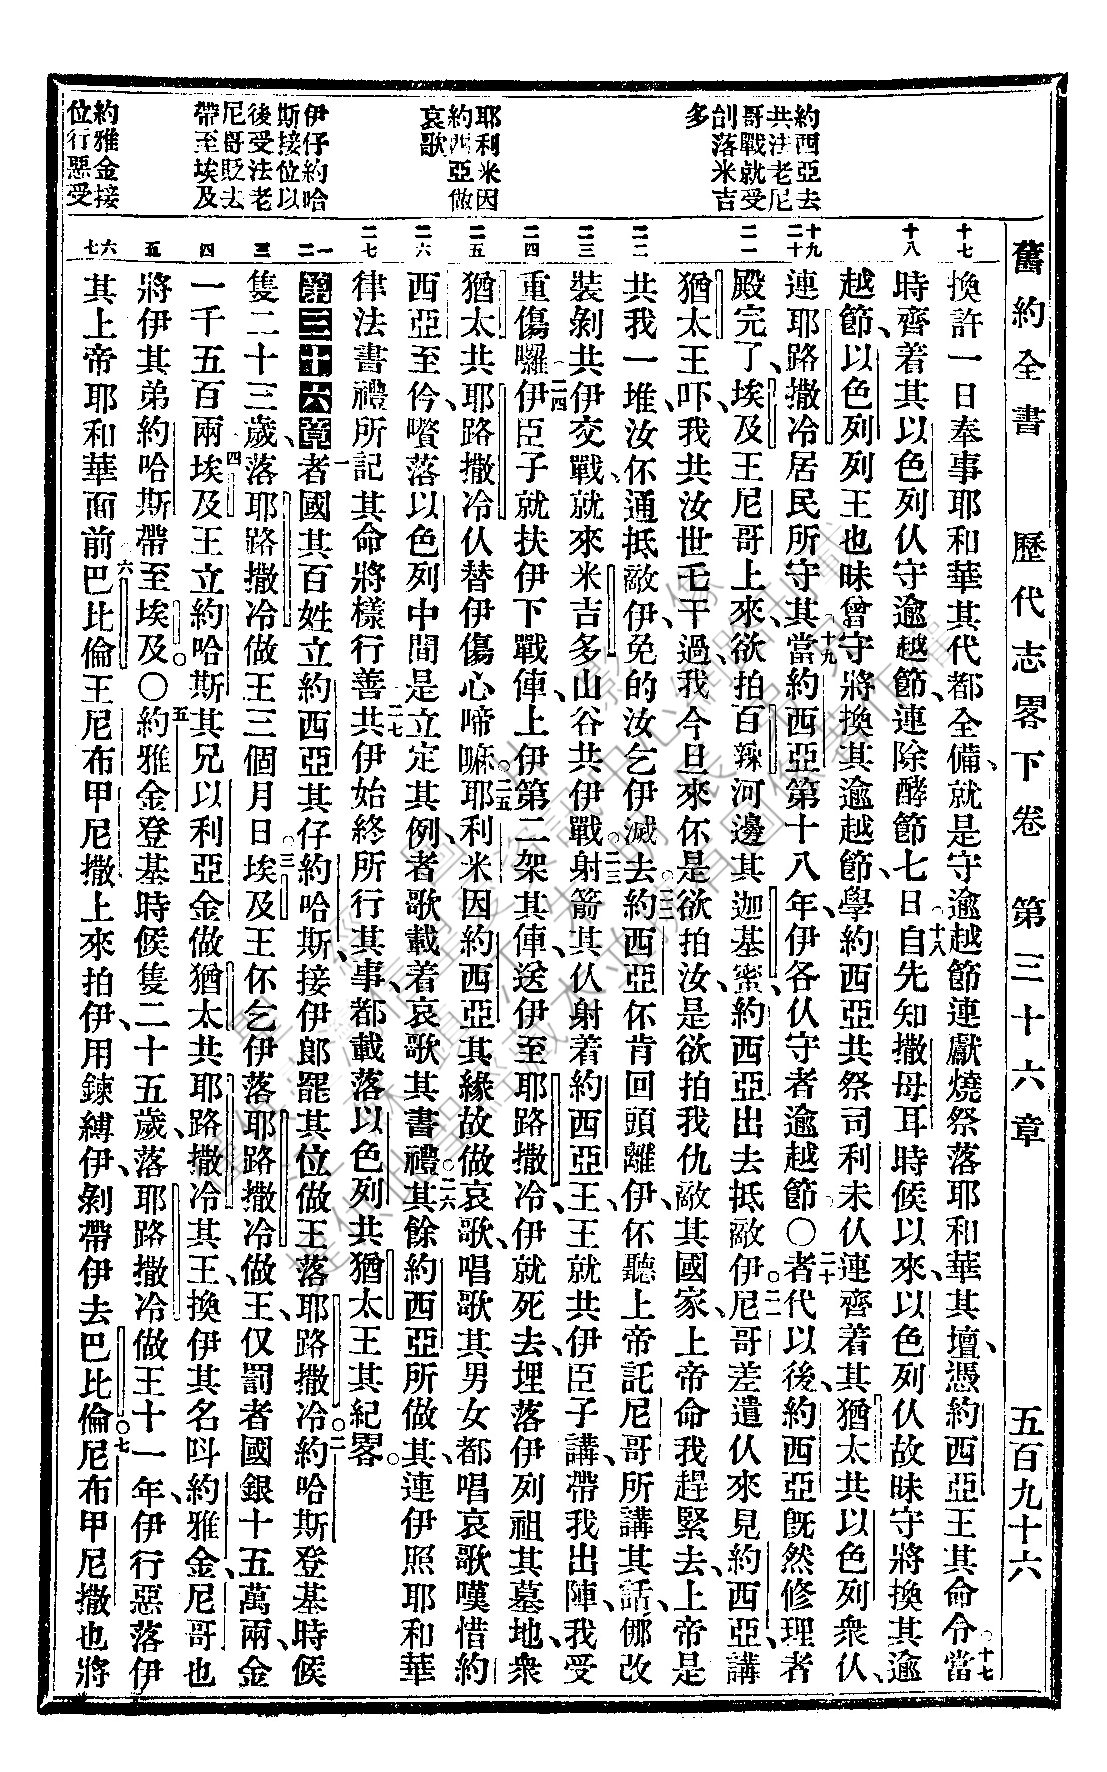 舊約全書 歷代志畧下卷 第三十六章 五百九十六
約西亞去
共法老尼
哥戰就受
刣落米吉
多
耶利米因
約西亞做
哀歌
伊仔約哈
斯接位以
後受法老
尼哥貶去
帶至埃及
約雅金接
位行惡受
十七
十八
十九
二十
二一
二二
二三
二四
二五
二六
二七
一
二
三
四
五
六
七
換許一日奉事耶和華其代都全備、就是守逾越節連獻燒祭落耶和華其壇、憑約西亞王其命令○十七當
時齊着其以色列仈守逾越節、連除酵節七日○十八自先知撒母耳時候以來、以色列仈故昧守將換其逾
越節、以色列列王也昧曾守將換其逾越節、學約西亞共祭司利未仈連齊着其猶太共以色列衆仈、
連耶路撒冷居民所守其○十九當約西亞第十八年伊各仈守者逾越節○二十者代以後、約西亞旣然修理者
殿完了、埃及王尼哥上來、欲拍百辣河邊其迦基蜜、約西亞出去抵敵伊○二一尼哥差遣仈來見約西亞、講
猶太王吓、我共汝世乇干過、我今日來伓是欲拍汝、是欲拍我仇敵其國家、上帝命我趕緊去、上帝是
共我一堆、汝伓通抵敵伊、免的汝乞伊滅去○二二約西亞伓肯回頭離伊、伓聽上帝託尼哥所講其話、倻改
裝剝共伊交戰、就來米吉多山谷共伊戰○二三射箭其仈射着約西亞王、王就共伊臣子講、帶我出陣、我受
重傷囉○二四伊臣子就扶伊下戰俥、上伊第二架其俥、送伊至耶路撒冷、伊就死去、埋落伊列祖其墓地、衆
猶太共耶路撒冷仈替伊傷心啼嘛○二五耶利米因約西亞其緣故做哀歌、唱歌其男女都唱哀歌嘆惜約
西亞至仱、嘗落以色列中間是立定其例、者歌載着哀歌其書禮○二六其餘約西亞所做其、連伊照耶和華
律法書禮所記其命將樣行善○二七共伊始終所行其事、都載落以色列共猶太王其紀畧○
第三十六章一者國其百姓立約西亞其仔約哈斯、接伊郎罷其位做王落耶路撒冷○二約哈斯登基時候
隻二十三歲、落耶路撒冷做王三個月日○三埃及王伓乞伊落耶路撒冷做王、仅罰者國銀十五萬兩、金
一千五百兩○四埃及王立約哈斯其兄以利亞金做猶太共耶路撒冷其王、換伊其名呌約雅金、尼哥也
將伊其弟約哈斯帶至埃及○○五約雅金登基時候隻二十五歲、落耶路撒冷做王十一年、伊行惡落伊
其上帝耶和華面前○六巴比倫王尼布甲尼撒上來拍伊、用鍊縛伊、剝帶伊去巴比倫○七尼布甲尼撒也將